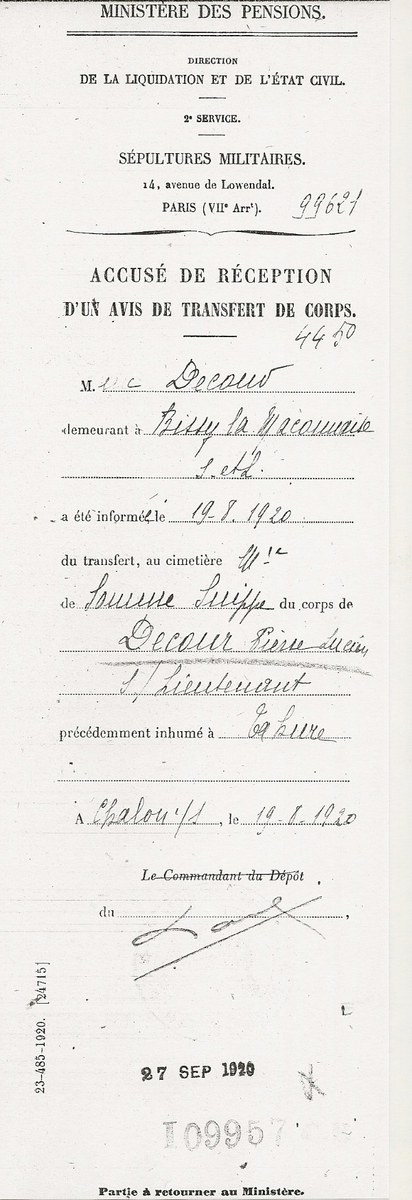 MINISTÈRE DES PENSIONS.
DIRECTION
DE LA LIQUIDATION ET DE L'ÉTAT CIVIL.
2e SERVICE.
SÉPULTURES MILITAIRES.
14, avenue de Lowendal.
PARIS (VIIe Arrt).
99621
ACCUSÉ DE RÉCEPTION
D'UN AVIS DE TRANSFERT DE CORPS.
4450
M. Decour
demeurant à Bissy la Maconnaise
S. et L.
a été informée le 19-8.1920
du transfert, au cimetière Mre
de Somme Suippe du corps de
Decour Pierre Lucien
S/Lieutenant
précédemment inhumé à Tahure
A Chalon s/s, le 19-8.1920
Le Commandant du Dépôt
du
23-485-1920. [24715]
27 SEP 1920
109957
Partie à retourner au Ministère.